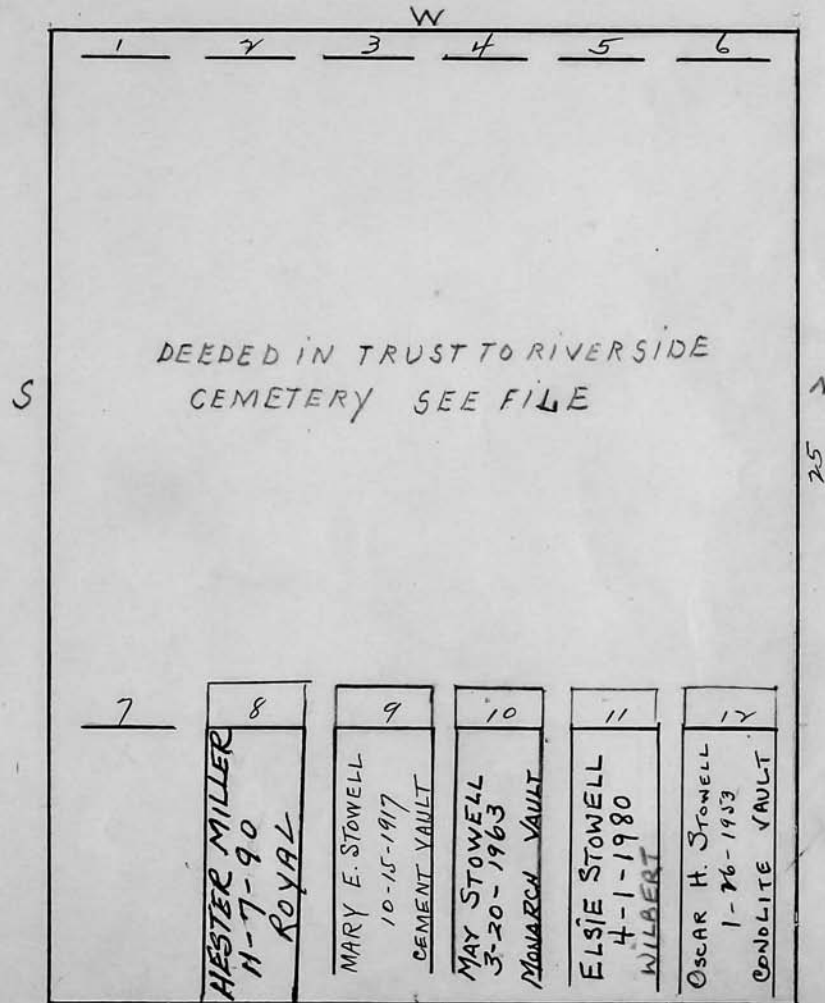 W
1 2 3 4 5 6
DEEDED IN TRUST TO RIVERSIDE
CEMETERY SEE FILE
S
N
25
7 8 9 10 11 12
HESTER MILLER
11-7-90
ROYAL
MARY E. STOWELL
10-15-1917
CEMENT VAULT
MAY STOWELL
3-20-1963
MONARCH VAULT
ELSIE STOWELL
4-1-1980
WILBERT
OSCAR H. STOWELL
1-26-1953
CONOLITE VAULT